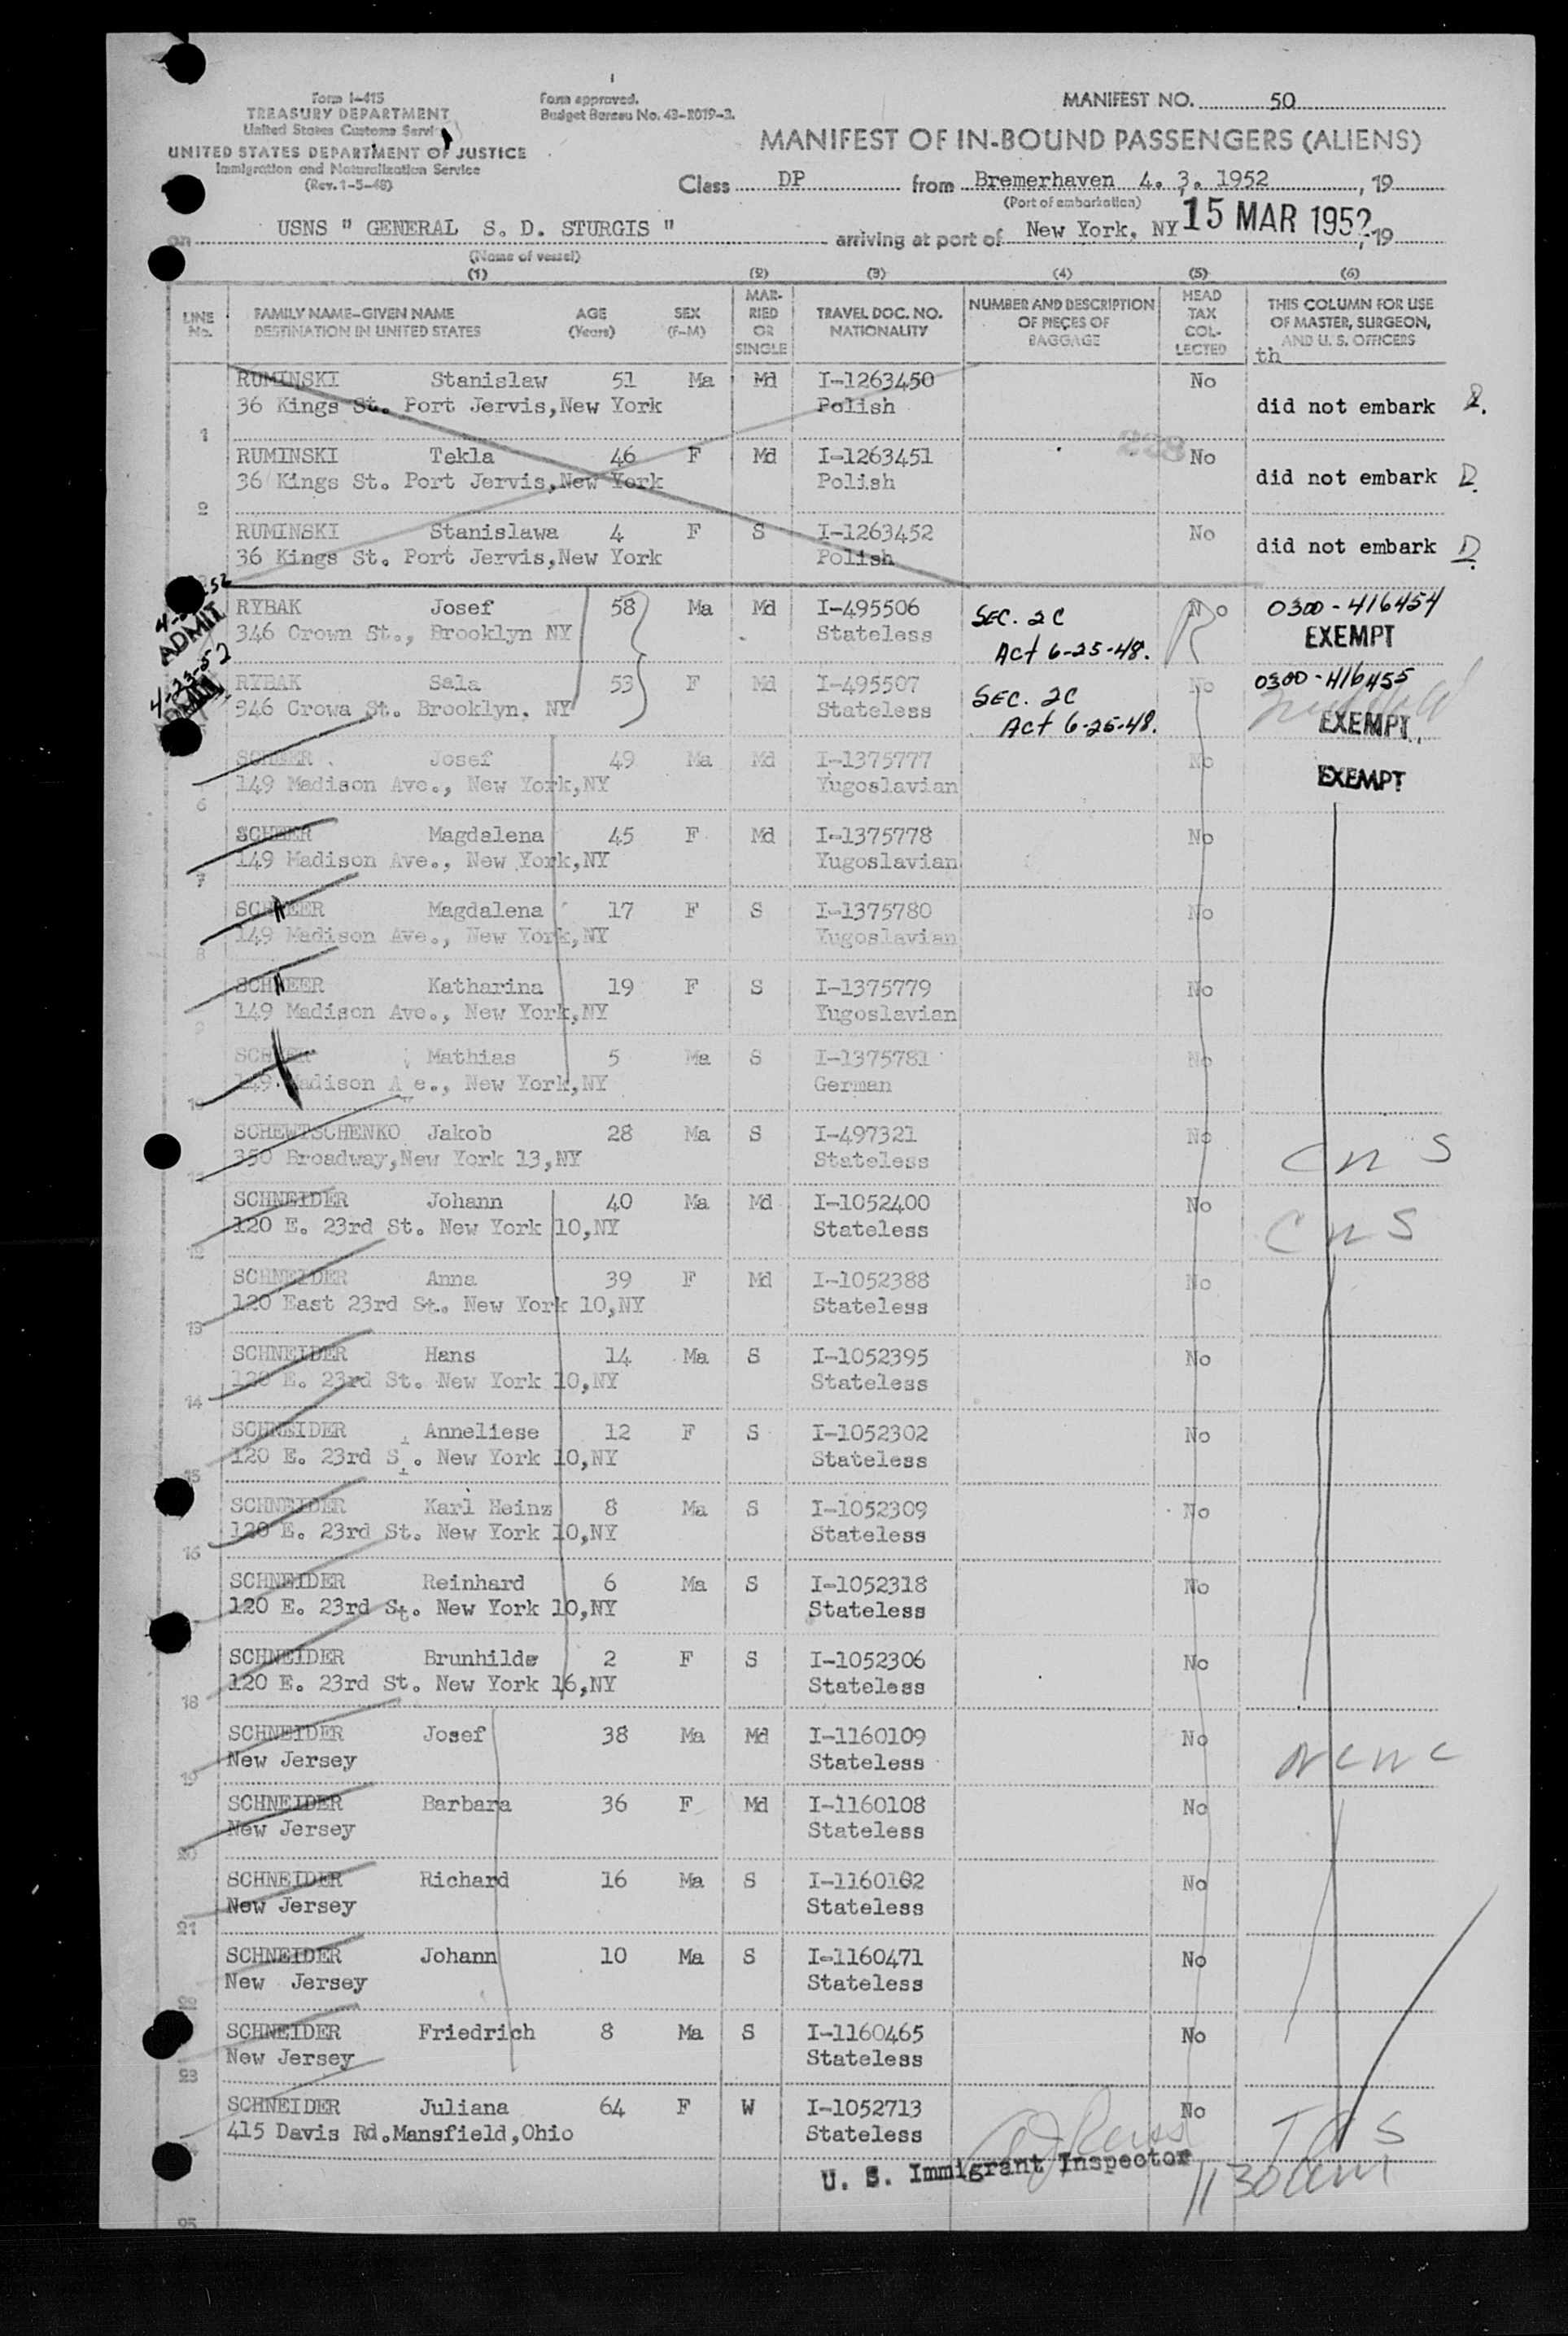 Form I-415
TREASURY DEPARTMENT
United States Customs Service
UNITED STATES DEPARTMENT OF JUSTICE
Immigration and Naturalization Service
(Rev. 1-5-48)
Form approved.
Budget Bureau No. 43-R019-2.
MANIFEST NO. 50
MANIFEST OF IN-BOUND PASSENGERS (ALIENS)
Class DP from Bremerhaven 4. 3. 1952, 19
(Port of embarkation)
on USNS " GENERAL S. D. STURGIS " arriving at port of New York, NY 15 MAR 1952, 19
(Name of vessel)
(1) (2) (3) (4) (5) (6)
LINE No. FAMILY NAME-GIVEN NAME DESTINATION IN UNITED STATES AGE (Years) SEX (F-M) MARRIED OR SINGLE TRAVEL DOC. NO. NATIONALITY NUMBER AND DESCRIPTION OF PIECES OF BAGGAGE HEAD TAX COLLECTED THIS COLUMN FOR USE OF MASTER, SURGEON, AND U. S. OFFICERS
th
RUMINSKI Stanislaw 51 Ma Md I-1263450 No
36 Kings St. Port Jervis,New York Polish did not embark
1
228
RUMINSKI Tekla 46 F Md I-1263451 No
36 Kings St. Port Jervis,New York Polish did not embark D.
2
RUMINSKI Stanislawa 4 F S I-1263452 No
36 Kings St. Port Jervis,New York Polish did not embark D.
ADMIT
RYBAK Josef 58 Ma Md I-495506 SEC. 2C No 0300-416454
346 Crown St., Brooklyn NY Stateless Act 6-25-48. EXEMPT
4-23-52
RYBAK Sala 53 F Md I-495507 SEC. 2C No 0300-416455
346 Crowa St. Brooklyn. NY Stateless Act 6-25-48. EXEMPT
SCHEER Josef 49 Ma Md I-1375777 No
149 Madison Ave., New York,NY Yugoslavian EXEMPT
6
SCHEER Magdalena 45 F Md I-1375778 No
149 Madison Ave., New York,NY Yugoslavian
7
SCHEER Magdalena 17 F S I-1375780 No
149 Madison Ave., New York,NY Yugoslavian
8
SCHEER Katharina 19 F S I-1375779 No
149 Madison Ave., New York,NY Yugoslavian
9
SCHEER Mathias 5 Ma S I-1375781 No
149 Madison A e., New York,NY German
10
SCHEWTSCHENKO Jakob 28 Ma S I-497321 No
350 Broadway,New York 13,NY Stateless C n S
SCHNEIDER Johann 40 Ma Md I-1052400 No
120 E. 23rd St. New York 10,NY Stateless C n S
12
SCHNEIDER Anna 39 F Md I-1052388 No
120 East 23rd St. New York 10,NY Stateless
13
SCHNEIDER Hans 14 Ma S I-1052395 No
120 E. 23rd St. New York 10,NY Stateless
14
SCHNEIDER Anneliese 12 F S I-1052302 No
120 E. 23rd St. New York 10,NY Stateless
15
SCHNEIDER Karl Heinz 8 Ma S I-1052309 No
120 E. 23rd St. New York 10,NY Stateless
16
SCHNEIDER Reinhard 6 Ma S I-1052318 No
120 E. 23rd St. New York 10,NY Stateless
SCHNEIDER Brunhilde 2 F S I-1052306 No
120 E. 23rd St. New York 16,NY Stateless
18
SCHNEIDER Josef 38 Ma Md I-1160109 No
New Jersey Stateless N C N C
19
SCHNEIDER Barbara 36 F Md I-1160108 No
New Jersey Stateless
20
SCHNEIDER Richard 16 Ma S I-1160102 No
New Jersey Stateless
21
SCHNEIDER Johann 10 Ma S I-1160471 No
New Jersey Stateless
22
SCHNEIDER Friedrich 8 Ma S I-1160465 No
New Jersey Stateless
23
SCHNEIDER Juliana 64 F W I-1052713 No
415 Davis Rd.Mansfield,Ohio Stateless
U. S. Immigrant Inspector 1130am
25